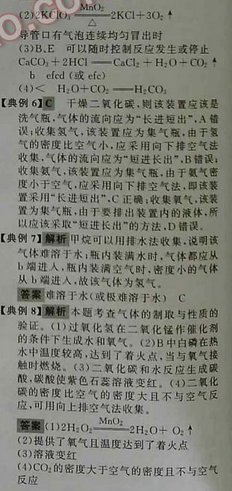 (2)2KClO₃ MnO₂ 2KCl+3O₂↑
△
导管口有气泡连续均匀冒出时
(3)B、E 可以随时控制反应发生或停止
CaCO₃+2HCl══CaCl₂+H₂O+CO₂↑
b efcd (或 efc)
(4)< H₂O+CO₂══H₂CO₃
【典例6】C 干燥二氧化碳,则该装置应该是
洗气瓶,气体的流向应为“长进短出”,A错
误;收集氢气,该装置应为集气瓶,由于氢
气的密度比空气小,应采用向下排空气法
收集,气体的流向应为“短进长出”,B错误;
收集氨气,该装置应为集气瓶,由于氨气密
度小于空气,应采用向下排空气法,即该装
置采用“长进短出”,C正确;收集氧气,该装
置为集气瓶,由于要排出装置内的液体,所
以应该采取“短进长出”的方法,D错误。
【典例7】解析 甲烷可以用排水法收集,说明该
气体难溶于水;瓶内装满水时,气体都应从
b端进入,瓶内装满空气时,密度小的气体
从b端进入,故该气体为氢气。
答案 难溶于水(或极难溶于水) C
【典例8】解析 本题考查气体的制取与性质的
验证。(1)过氧化氢在二氧化锰作催化剂
的条件下生成水和氧气。(2)B中白磷在热
水中温度较高,达到了着火点,当与氧气接
触时燃烧。(3)二氧化碳和水反应生成碳
酸,碳酸使紫色石蕊溶液变红。(4)二氧化
碳的密度比空气的密度大且不与空气反
应,可用向上排空气法收集。
答案 (1)2H₂O₂ MnO₂ 2H₂O+O₂↑
(2)提供了氧气且温度达到了着火点
(3)溶液变红
(4)CO₂的密度大于空气的密度且不与空气
反应